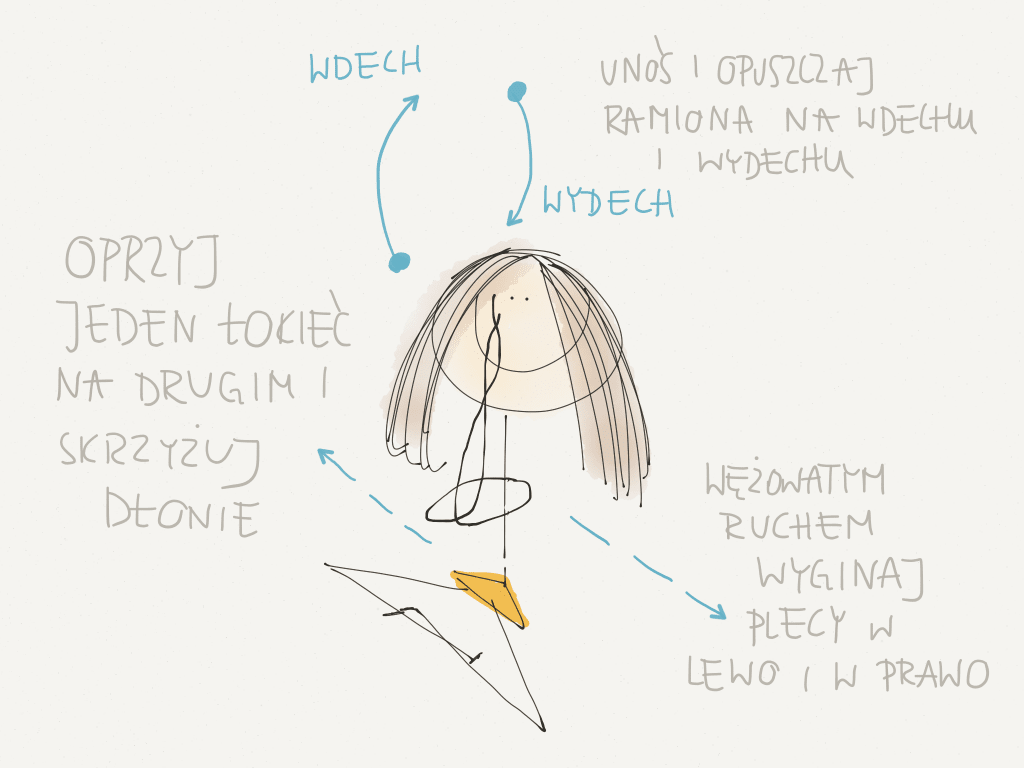 WDECH
UNOŚ I OPUSZCZAJ
RAMIONA NA WDECHU
I WYDECHU
WYDECH
OPRZYJ
JEDEN ŁOKIEĆ
NA DRUGIM I
SKRZYŻUJ
DŁONIE
WĘŻOWATYM
RUCHEM
WYGINAJ
PLECY W
LEWO I W PRAWO